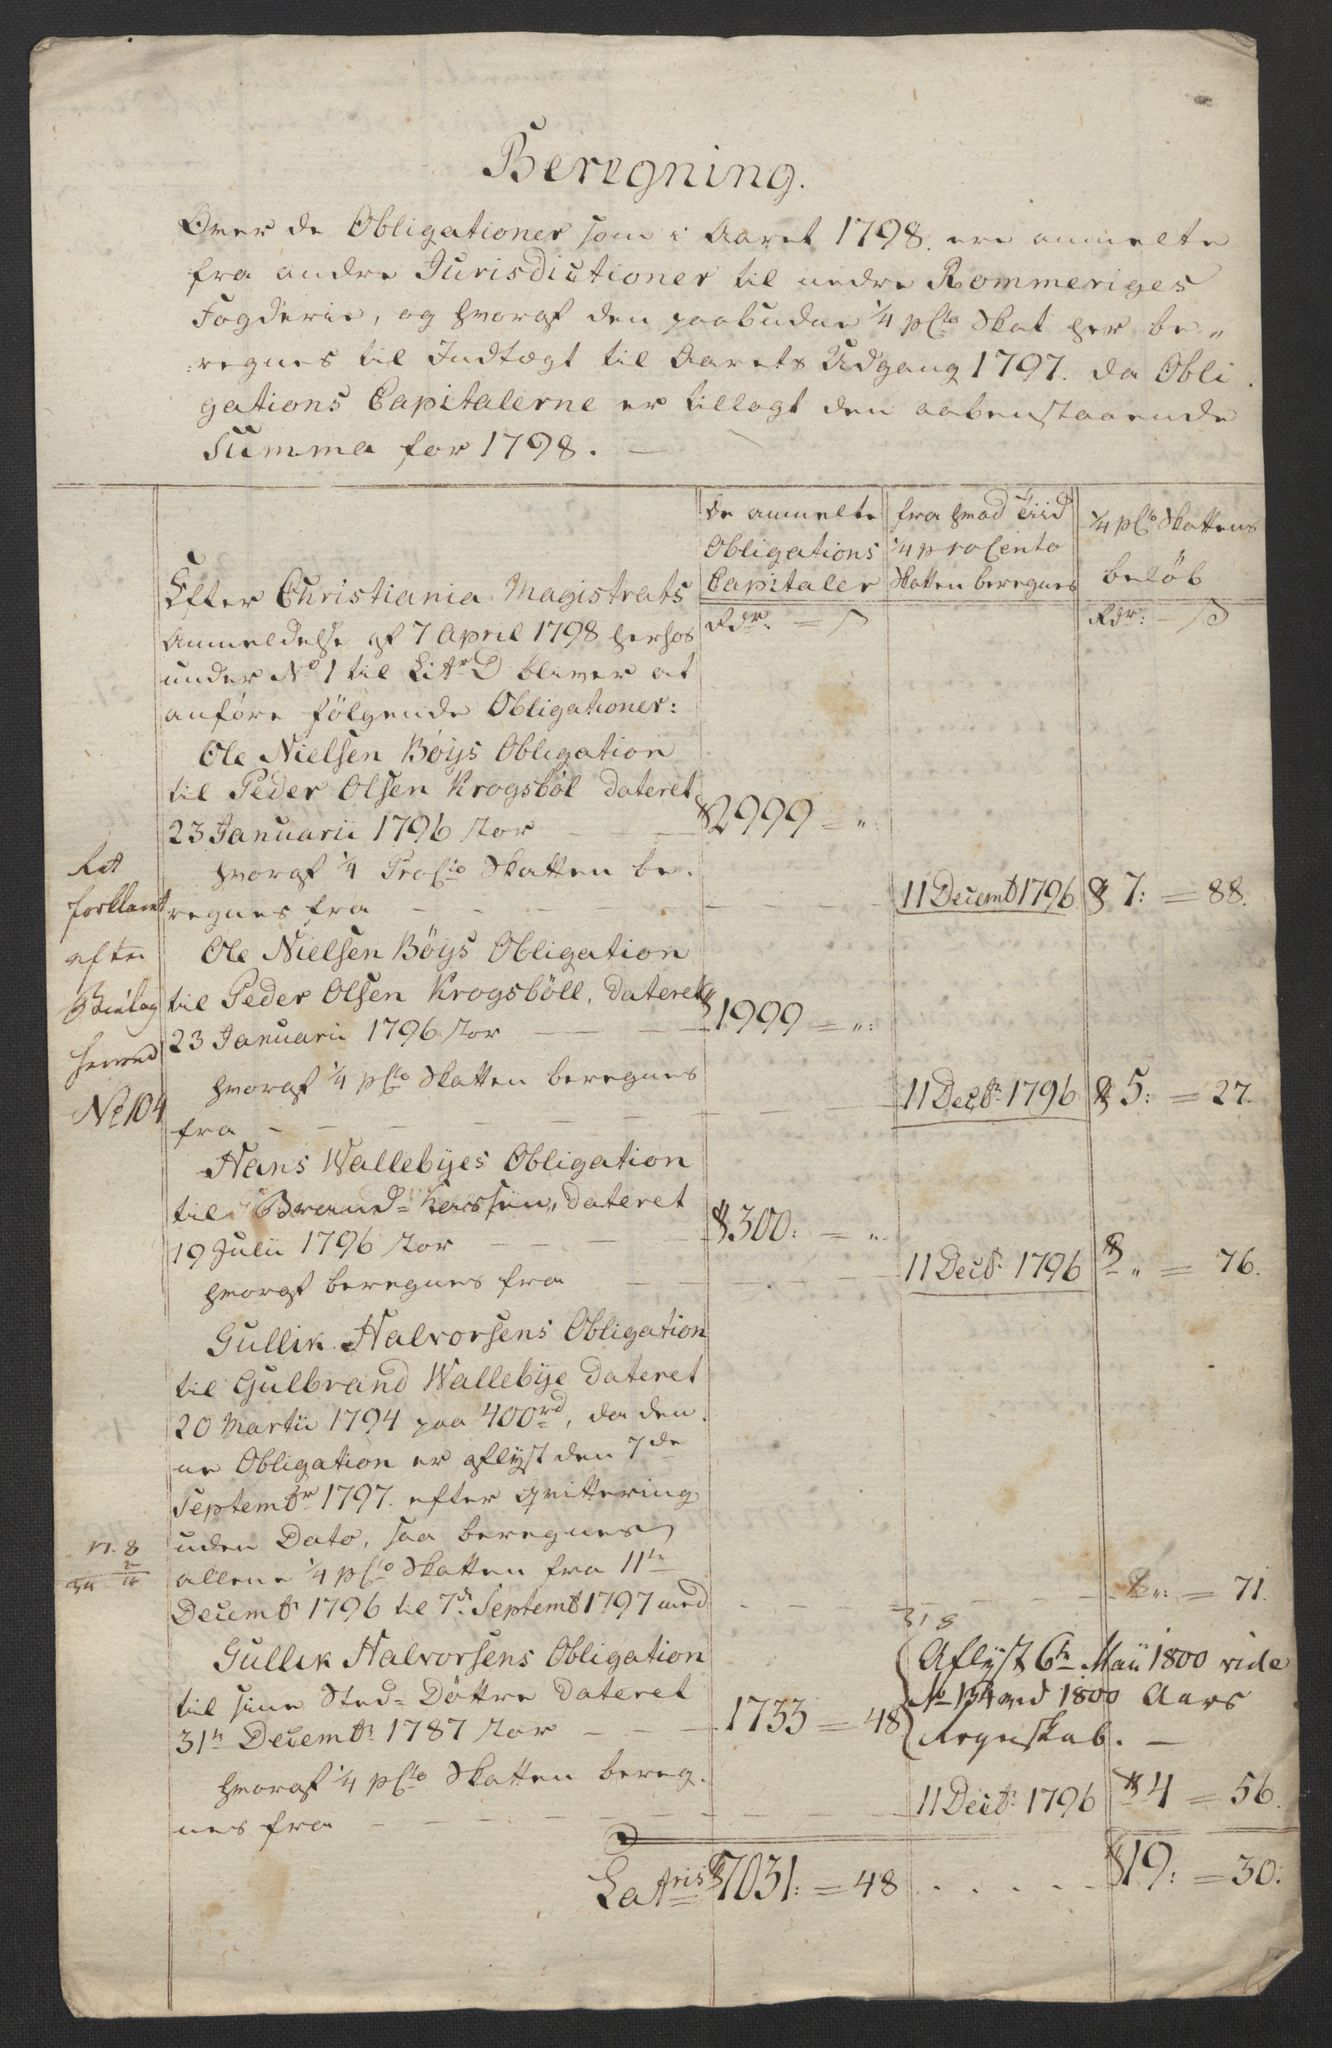 Beregning.
Over de Obligationer som i Aaret 1798. ere anmelte
fra andre Jurisdictioner til nedre Rommeriges
Fogderie, og hvoraf den paabudne 1/4 pCto Skat her be„
regnes til Indtægt til Aarets Udgang 1797. da Obli
gations Capitalerne er tillagt den aabenstaaende
Summa for 1798. —
De anmelte
Obligations
Capitaler
fra hvad Tiid
1/4 procento
Skatten beregnes
1/4 pCto Skattens
beløb
Rdr. = ß
Rdr: — ß
Efter Christiania Magistrats
Anmeldelse af 7 April 1798 herhos
under No 1 til Litr D bliver at
anføre følgende Obligationer:
Ole Nielsen Bøÿs Obligation
til Peder Olsen Krogsbøl dateret
23 Januarii 1796 stor — — 2999 = „
hvoraf 1/4 ProCto Skatten be.
regnes fra — — — 11 Decembr 1796 7: = 88.
Ole Nielsen Bøÿs Obligation
til Peder Olsen Krogsböll, dateret
23 Januarii 1796 stor — — 1999 = „:
hvoraf 1/4 pCto Skatten beregnes
fra — — — 11 Decbr. 1796 5: = 27.
Ret
forklaret
efter
Bielag
No 104
Hans Wallebÿes Obligation
til Brand= Kassen, dateret
19 Julii 1796 stor — — 300: = „
hvoraf beregnes fra — — 11 Decbr. 1796 „ = 76.
Gullik Halvorsens Obligation
til Gulbrand Wallebÿe dateret
20 Martii 1794 paa 400rd, da den.
ne Obligation er aflÿst den 7de
Septembr 1797. efter qvittering
uden Dato, saa beregnes
allene 1/4 pCto Skatten fra 11te
Decembr 1796 til 7de Septembr 1797 med — — „: = 71.
Gullik Halvorsens Obligation
til sine Sted= Døttre dateret
31te Decembr. 1787 stor — — 1733 = 48
Aflÿst 6te Maii 1800 vide
No 154 ved 1800 Aars
Regnskab. —
hvoraf 1/4 pCto Skatten bereg.
nes fra — — — 11 Decbr. 1796 4 = 56.
Latris 7031: = 48 . . . . . 19: = 30: